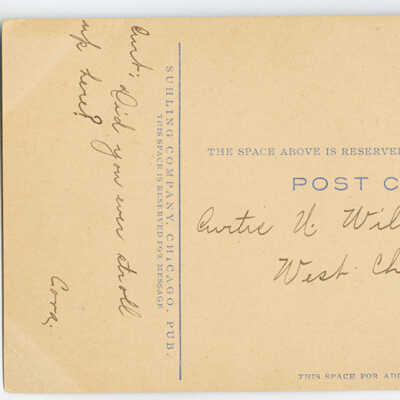 Curt; Did you ever stroll
up here?
Cora.
SUHLING COMPANY, CHICAGO, PUB.
THIS SPACE IS RESERVED FOR MESSAGE
THE SPACE ABOVE IS RESERVE
POST C
Curtis N. Wil
West Ch
THIS SPACE FOR ADD